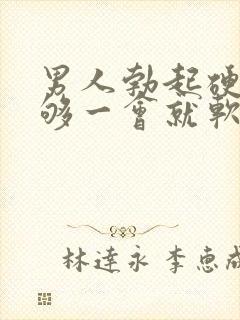 男人勃起硬
够一會就軟
林達永 李惠成